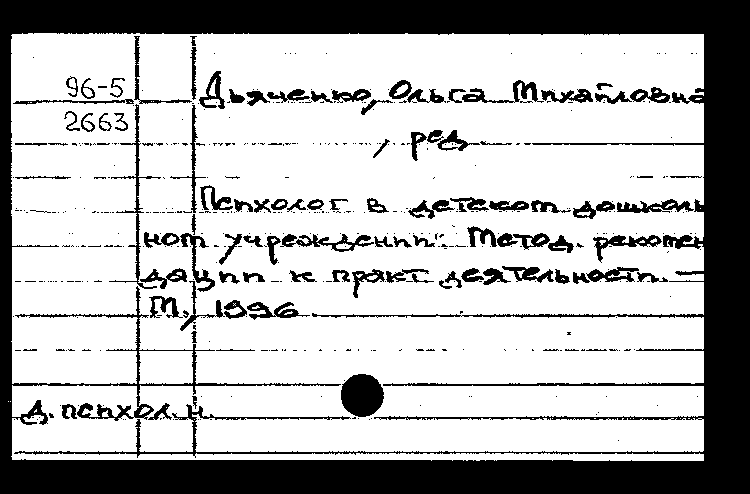 96-5 Дьяченко, Ольга Михайловна
2663
, ред.
Психолог в детском дошколь
ном учреждении: Метод. рекомен
дации к практ. деятельности. —
М., 1996.
Д. психол. н.